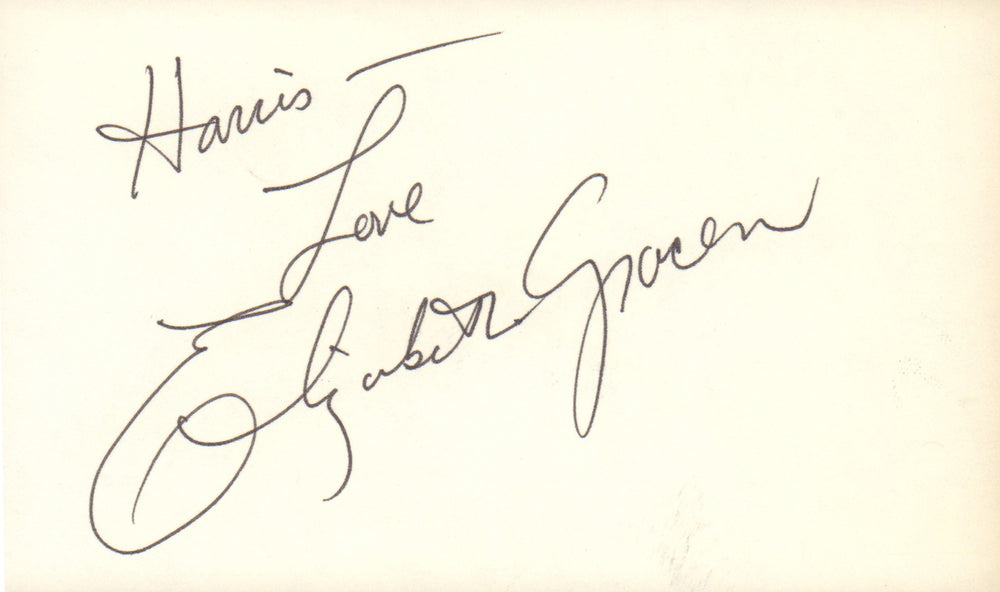 Harris —
Love
Elizabeth Gracen